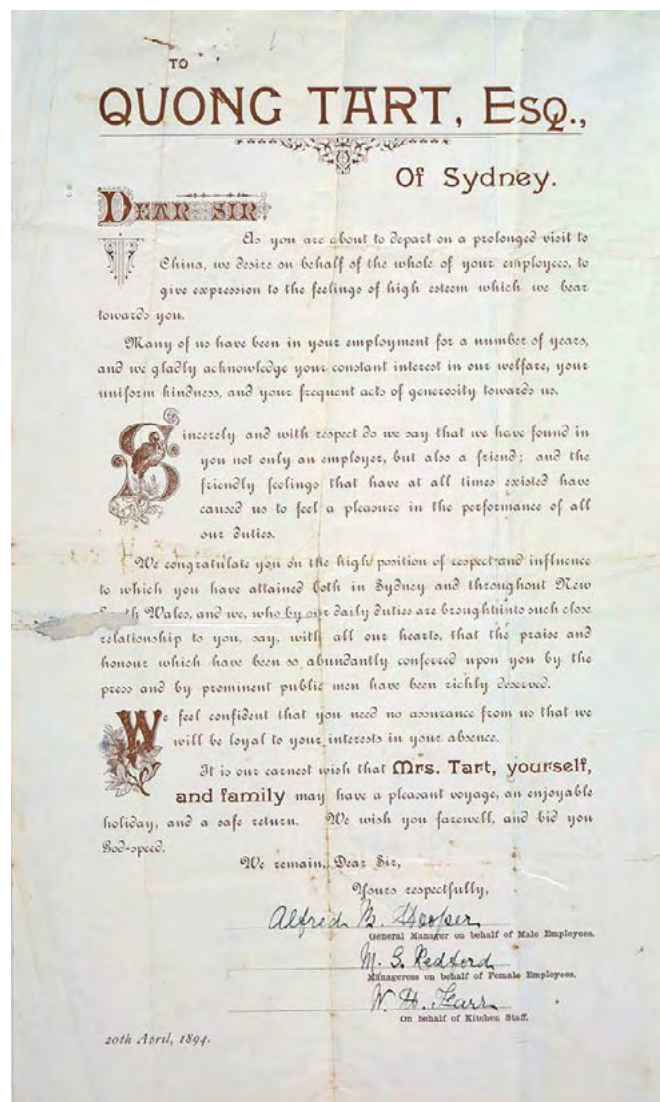 TO
QUONG TART, ESQ.,
Of Sydney.
DEAR SIR:
As you are about to depart on a prolonged visit to
China, we desire on behalf of the whole of your employees, to
give expression to the feelings of high esteem which we bear
towards you.
Many of us have been in your employment for a number of years,
and we gladly acknowledge your constant interest in our welfare, your
uniform kindness, and your frequent acts of generosity towards us.
Sincerely and with respect do we say that we have found in
you not only an employer, but also a friend; and the
friendly feelings that have at all times existed have
caused us to feel a pleasure in the performance of all
our duties.
We congratulate you on the high position of respect and influence
to which you have attained both in Sydney and throughout New
Wales, and we, who by our daily duties are brought into such close
relationship to you, say, with all our hearts, that the praise and
honour which have been so abundantly conferred upon you by the
press and by prominent public men have been richly deserved.
We feel confident that you need no assurance from us that we
will be loyal to your interests in your absence.
It is our earnest wish that Mrs. Tart, yourself,
and family may have a pleasant voyage, an enjoyable
holiday, and a safe return. We wish you farewell, and bid you
God-speed.
We remain, Dear Sir,
Yours respectfully,
Alfred B. Hooper
General Manager on behalf of Male Employees.
M. G. Redford
Manageress on behalf of Female Employees.
W. H.
On behalf of Kitchen Staff.
20th April, 1894.